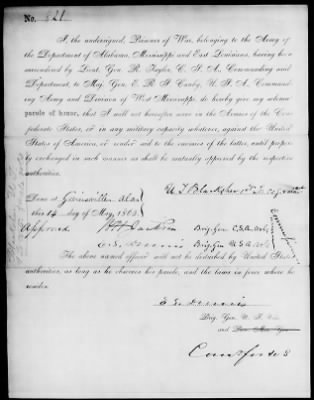 No. 821
I, the undersigned, Prisoner of War, belonging to the Army of
the Department of Alabama, Mississippi and East Louisiana, having been
surrendered by Lieut. Gen. R. Taylor, C. S. A., Commanding
said Department, to Maj. Gen. E. R. S. Canby, U. S. A., Command-
ing Army and Division of West Mississippi, do hereby give my solemn
parole of honor, that I will not hereafter serve in the Armies of the Con-
federate States, or in any military capacity whatever, against the United
States of America, or render aid to the enemies of the latter, until proper-
ly exchanged in such manner as shall be mutually approved by the respective
authorities.
Done at Gainesville Ala
this 14 day of May, 1865.
Approved Brig Gen C.S.A. Col
E. S. Dennis Brig Gen U S A Col
Commissioner
The above named officer will not be disturbed by United States
authorities, as long as he observes his parole, and the laws in force where he
resides.
E S Dennis
Brig. Gen. U. S. Vols
and